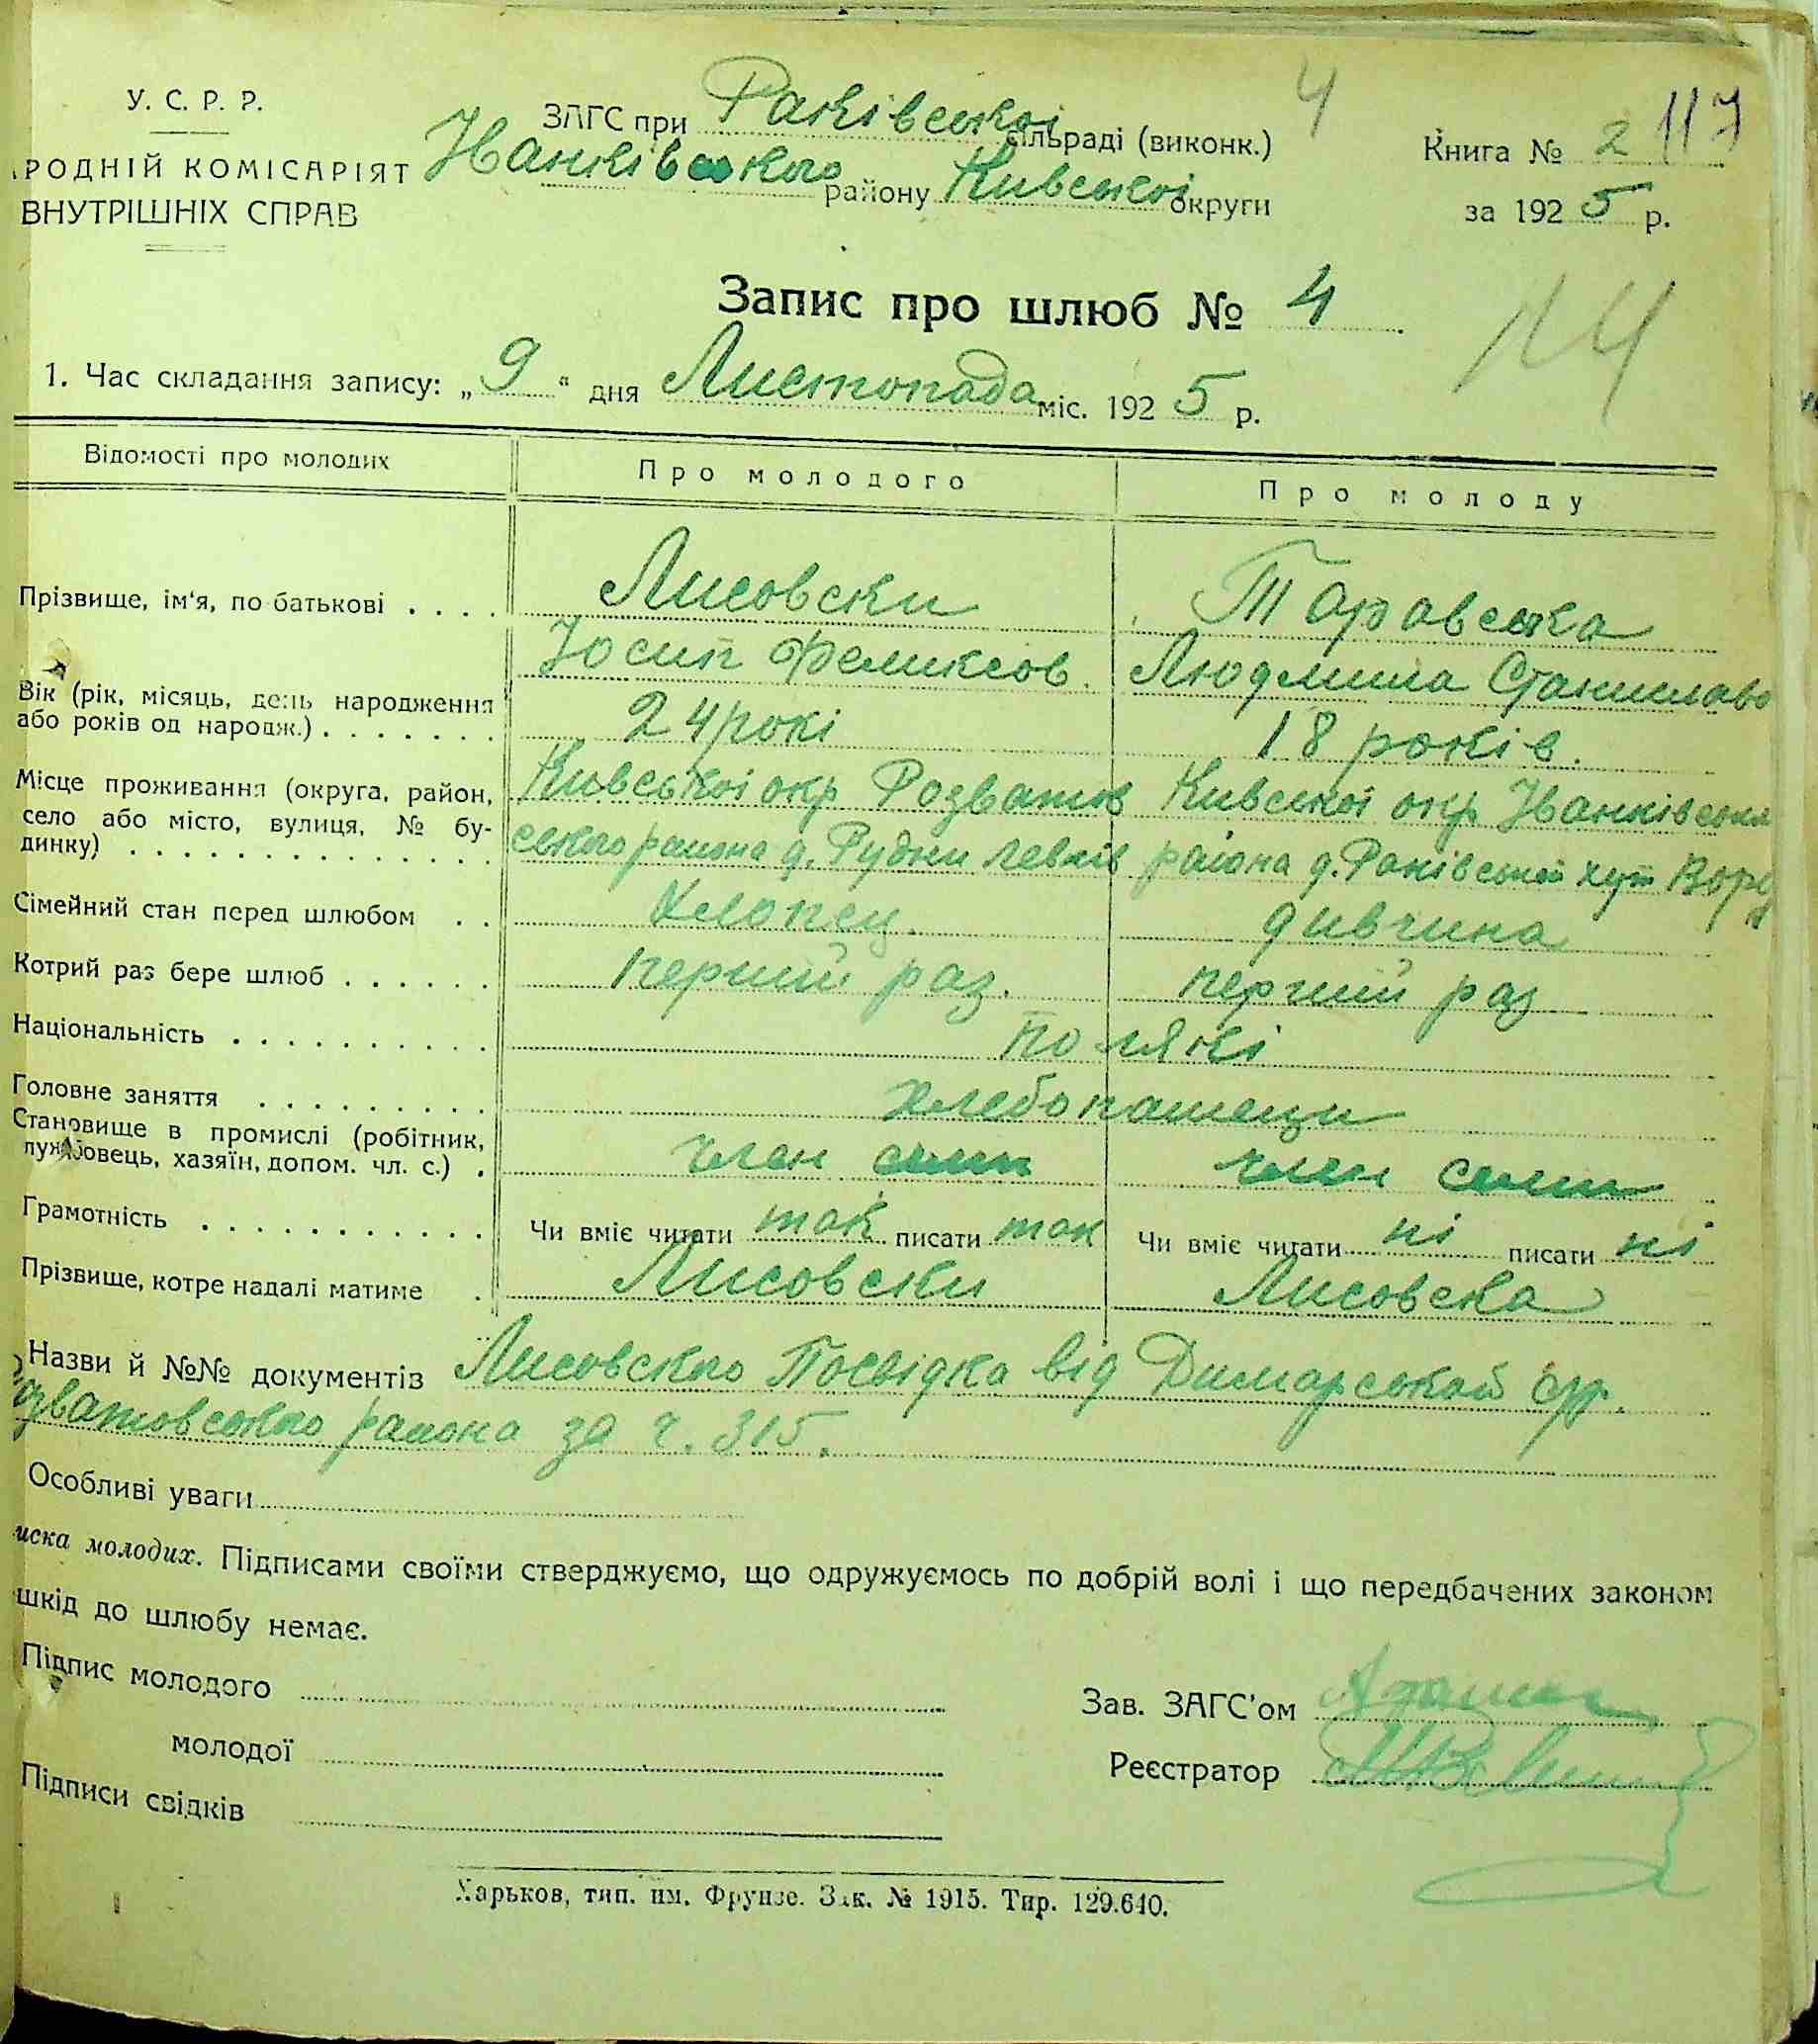 У. С. Р. Р.
РОДНІЙ КОМІСАРІЯТ
ВНУТРІШНІХ СПРАВ
ЗАГС при Раківської сільраді (виконк.)
Иванківського району Кивської округи
4
Книга № 2 117
за 1925 р.
Запис про шлюб № 4
14
1. Час складання запису: „9“ дня Листопада міс. 1925 р.
Відомості про молодих Про молодого Про молоду
Прізвище, ім'я, по батькові . . . . Лисовски Таравська
Юсип Феликсов. Людмила Станиславо
Вік (рік, місяць, день народження
або років од народж.) . . . . . . . 24 рокі 18 років.
Місце проживання (округа, район, Кивської окр Розватов Кивської окр Іванківсько
село або місто, вулиця, № бу-
динку) . . . . . . . . . . . . . . ського района д. Рудни левків района д. Раківской хут
Сімейний стан перед шлюбом . . Хлопец. дивчина
Котрий раз бере шлюб . . . . . . перший раз. перший раз
Національність . . . . . . . . . . поляки
Головне заняття . . . . . . . . . хлебопашеци
Становище в промислі (робітник,
лужбовець, хазяїн, допом. чл. с.) . член семи член семи
Грамотність . . . . . . . . . . . Чи вміє читати так писати так Чи вміє читати ні писати ні
Прізвище, котре надалі матиме . Лисовски Лисовска
Назви й №№ документів Лисовского Посвідка від Димарськой с/р.
озватовського района за ч. 315.
Особливі уваги
иска молодих. Підписами своїми стверджуємо, що одружуємось по добрій волі і що передбачених законом
шкід до шлюбу немає.
Підпис молодого
молодої
Підписи свідків
Зав. ЗАГС'ом
Реєстратор
Харьков, тип. им. Фрунзе. Зак. № 1915. Тир. 129.640.